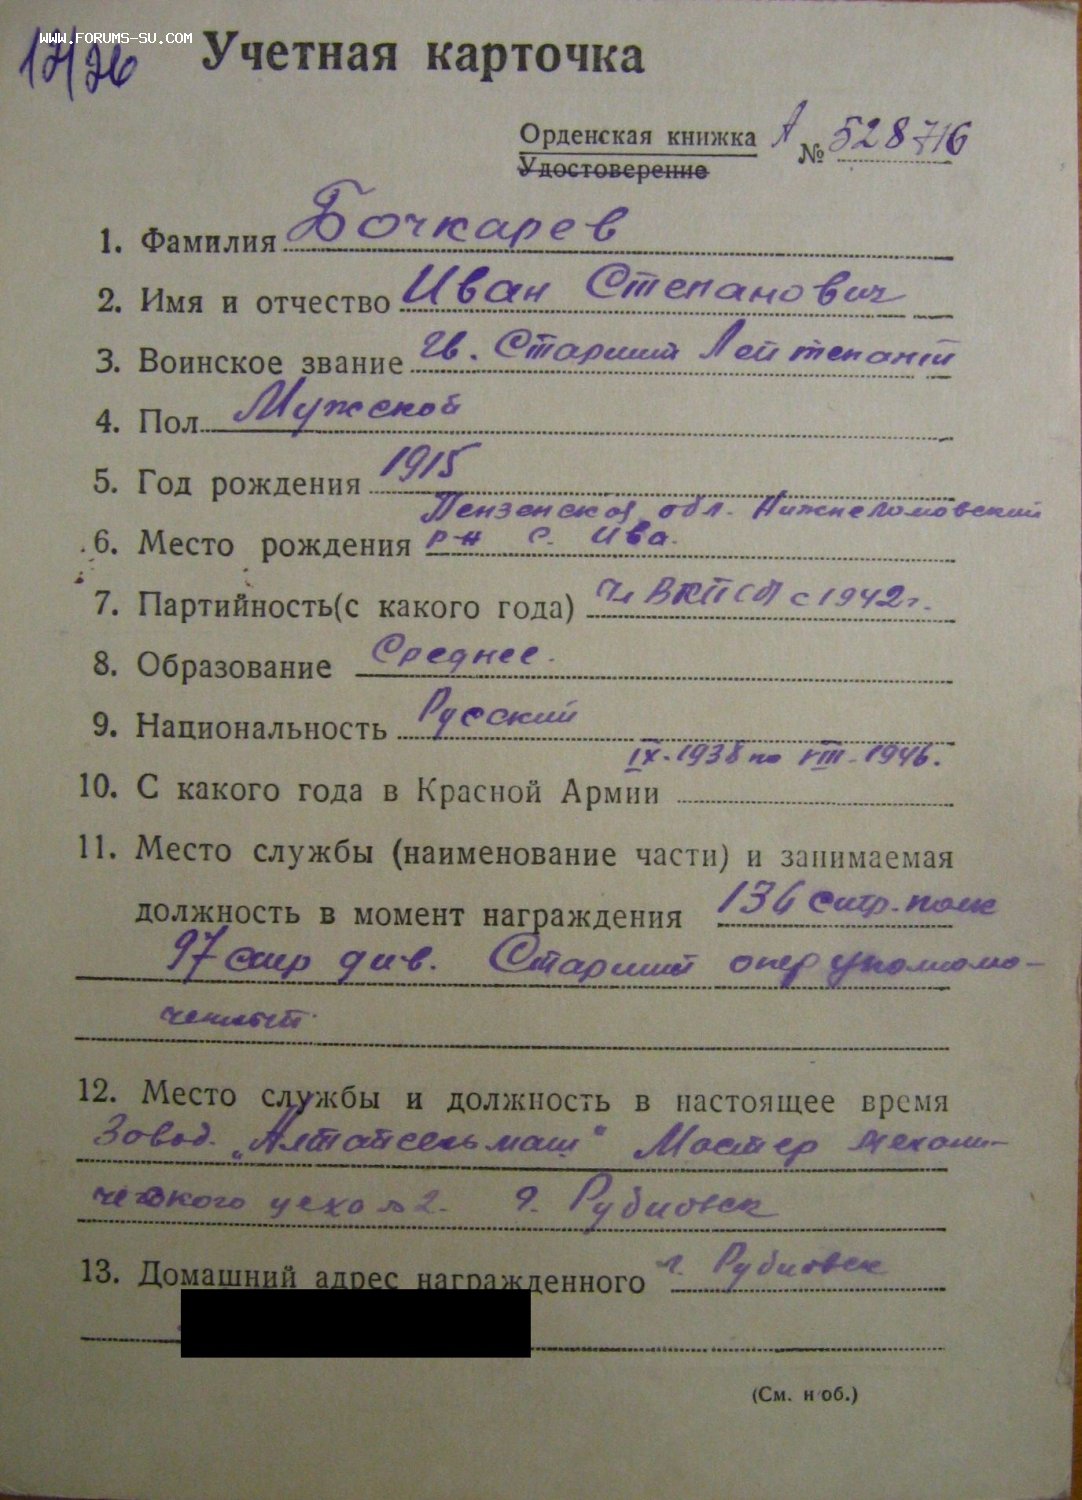 www.forums-su.com
17/26
Учетная карточка
Орденская книжка А № 528716
Удостоверение
1. Фамилия Бочкарев
2. Имя и отчество Иван Степанович
3. Воинское звание гв. Старший Лейтенант
4. Пол Мужской
5. Год рождения 1915
Пензенская обл. Нижнеломовский
6. Место рождения р-н с. Ива.
7. Партийность(с какого года) Чл ВКП(б) с 1942 г.
8. Образование Среднее.
9. Национальность Русский
IX-1938 по VIII-1946.
10. С какого года в Красной Армии
11. Место службы (наименование части) и занимаемая
должность в момент награждения 136 стр. полк
97 стр див. Старший оперуполномо-
ченный
12. Место службы и должность в настоящее время
Завод „Алтайсельмаш" Мастер механи-
ческого цеха №2. г. Рубцовск
13. Домашний адрес награжденного г. Рубцовск
(См. н об.)